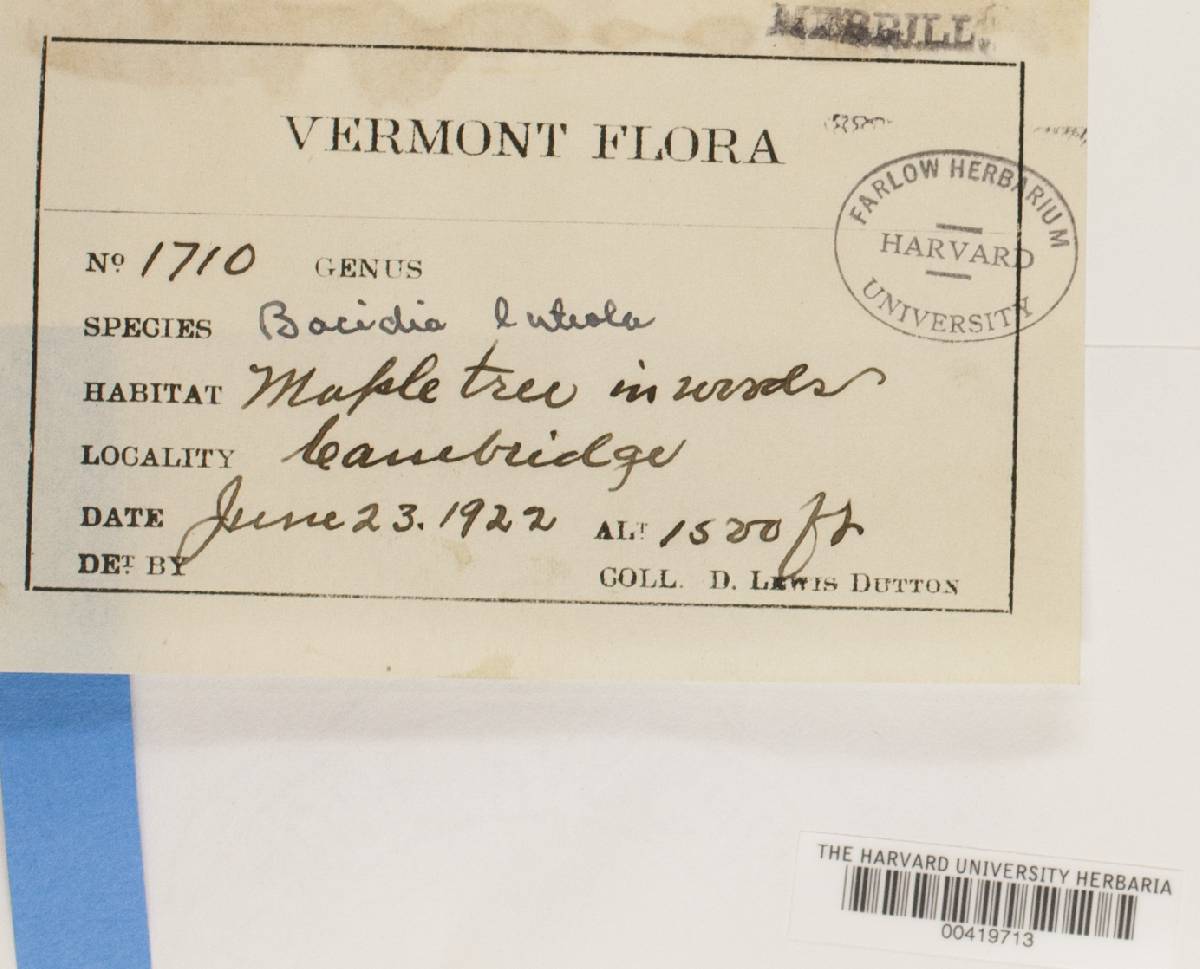 MERRILL.
VERMONT FLORA
FARLOW HERBARIUM
HARVARD
UNIVERSITY
Nº 1710 GENUS
SPECIES Bacidia luteola
HABITAT Maple tree in woods
LOCALITY Cambridge
DATE June 23. 1922 ALT 1500 ft
DET BY
COLL. D. LEWIS DUTTON
THE HARVARD UNIVERSITY HERBARIA
00419713